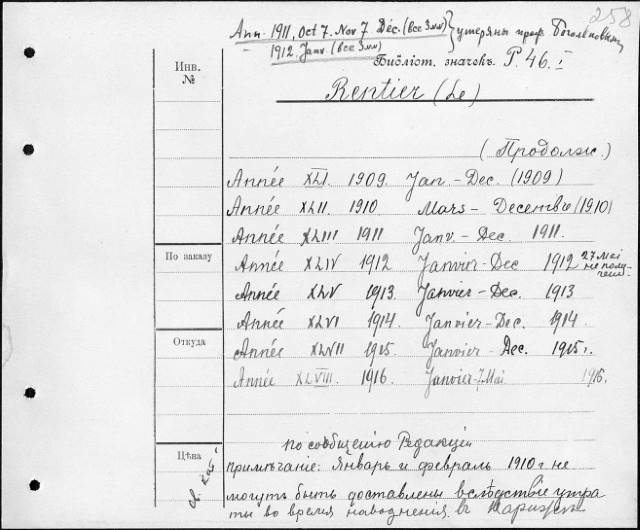 258
Ann. 1911, Oct 7. Nov 7 Dec. (все 3 №№) утеряны проф. Боголеповым
1912. Janv. (все 3 №№)
Библіот. значокъ. P. 46. I
Инв.
№
Rentier (Le)
(Продолж.)
Année XLI. 1909. Jan - Dec. (1909)
Année XLII. 1910 Mars - Decembre (1910)
Année XLIII 1911 Janv. - Dec. 1911.
По заказу
Année XLIV 1912 Janvier - Dec 1912 27 Mai не получено
Année XLV 1913. Janvier - Dec. 1913
Année XLVI 1914. Janvier - Dec. 1914.
Откуда
Année XLVII 1915. Janvier - Dec. 1915 г.
Année XLVIII. 1916. Janvier - 7 Mai 1916.
Цѣна
по сообщенію Редакціи
примѣчаніе: Январь и февраль 1910 г не
могутъ быть доставлены вслѣдствіе утра
ты во время наводненія въ Парижѣ